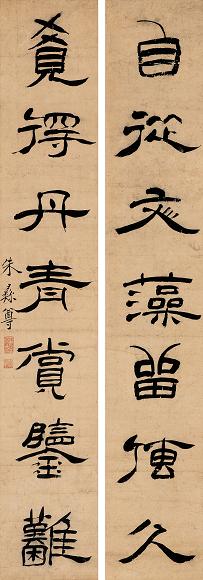 自從文藻留傳久
覺得丹青賞鑒難
朱彝尊